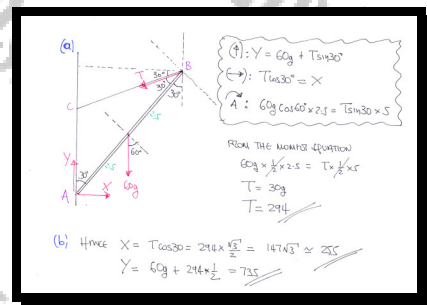 (a)
B
30°
T
30°
30°
C
2.5
Y
60°
30°
2.5
60g
A
X
(↑): Y = 60g + Tsin30°
(→): Tcos30° = X
A: 60g cos60° × 2.5 = Tsin30 × 5
FROM THE MOMENT EQUATION
60g × 1/2 × 2.5 = T × 1/2 × 5
T = 30g
T = 294
(b) HENCE X = Tcos30 = 294 × √3/2 = 147√3 ≃ 255
Y = 60g + 294 × 1/2 = 735